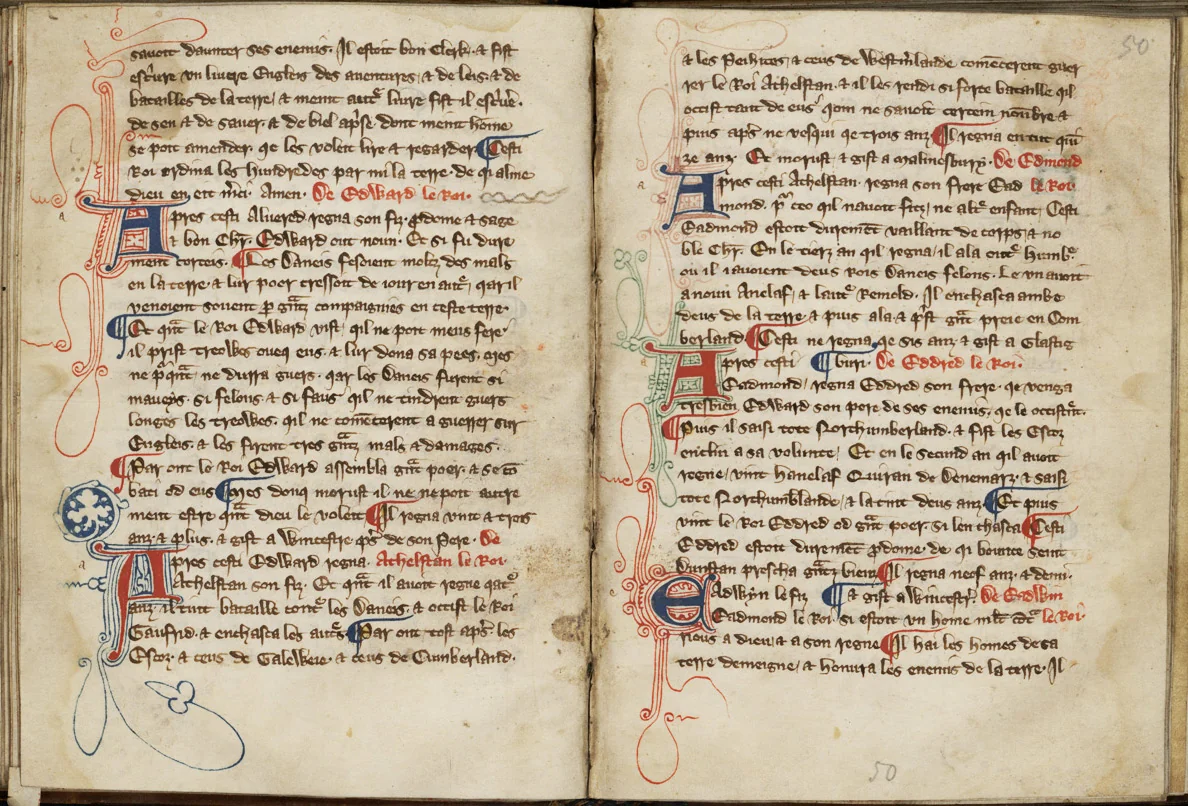 sauoit daunter ses enemis. Il estoit bon Clerk. & fist
escⁱure vn liuere Engleis des auentures. & de leis. & de
batailles de la terre / & meint autr̃ liure fist il escⁱuẽ.
de sen & de sauer. & de biel apⁱse. dont meint home
se poit amender. qe les voleit lire & regarder ¶ Cesti
Roi ordina les hundredes par mi la terre. de qi alme
dieu en eit mⁱci. Amen. De Edward le Roi.
Apres cesti Aluered regna son fiz. pⁱdome & sage
& bon Chr̃. Edward out noun. Et si fu dure
ment corteis. ¶ Les Daneis fesoient moltz des mals
en la terre. & lur poer cressoit de iour en autr̃. qar il
venoient souent ꝑ gⁿtz compaignies en ceste terre.
¶ Et qⁿt le Roi Edward vist / qil ne poit meus fere.
il prist trewes oueqꝫ eus. & lur dona sa pees. mes
ne pⁱqⁿt / ne durra guers. qar les Daneis furent si
maueys. si felons. & si faus / qil ne tindrent guers
longes les trewes. qil ne comẽcerent a guerrer sur
Engleis. & les firent tres gⁿtz mals & damages.
¶ Par ont le Roi Edward assembla gⁿt poer. & se cõ
bati od eus ¶ Mes donqꝫ morust il. ne ne poit autre
ment estre qⁿt dieu le voleit ¶ Il regna vint & trois
anz. & plus. & gist a Wincestre pⁱs de son Pere. De
Apres cesti Edward regna. Athelstan le Roi.
Athelstan son fiz. Et qⁿt il auoit regne qatr̃
anz. il tint bataille contr̃ les Daneis. & occist le Roi
Gaufrid. & enchasca les autr̃s ¶ Par ont tost apⁱs. les
Escoz. & ceus de Galeweie. & ceus de Cumberland.
50
& les Peihites. & ceus de Westmⁱlande. comẽcerent guer
rer le Roi Athelstan. & il les rendi si forte bataille qil
occist tant de eus / qom ne sauoit certein noũbre. &
puis apⁱs ne vesqui qe trois anz ¶ Il regna en tut quĩ
ze anz. Et morust & gist a Malmesbury. De Edmond
Apres cesti Athelstan. regna son frere Ead le Roi.
mond. pⁱ ceo qil nauoit fitz / ne altⁱ enfant. Cesti
Eadmond estoit duremẽt vaillant de corps / & no
ble Chr̃. En le tierz an qil regna / il ala outr̃ Humbⁱ.
ou il i auoient deus rois Daneis felons. Le vn auoit
a noun Anelaf / & lautr̃ Remold. Il enchasca ambe
deus de la terre. & puis ala. & pⁱst gⁿt preie en Com
berland ¶ Cesti ne regna qe sis anz. & gist a Glasting
Apres cesti ¶ buri. De Eddred le Roi.
Eadmond / regna Eddred son frere. qe venga
tresbien Edward son pere de ses enemis. qe le occistr̃t.
¶ Puis il saisi tote Northumberland. & fist les Escoz
enclin a sa volunte / Et en le secund an qil auoit
regne / vint Hanelaf Quiran de Denemarz. & saisi
tote Northũblande / & la tint deus anz. ¶ Et puis
vint le Roi Eddred od gⁿt poer. si len chasca ¶ Cesti
Eddred estoit duremẽt pⁱdome. de qi bounte Seint
Dunstan prescha gⁿtz biens ¶ Il regna neof anz. & demi.
Eadwyn le fiz ¶ & gist a Wincestr̃. De Eadwin
Eadmond le Roi. si estoit vn home ml̃t cõtⁿ le Roi.
rious a dieu / & a son regne ¶ Il hai les homes de sa
terre demeigne / & honura les enemis de la terre. Il
50